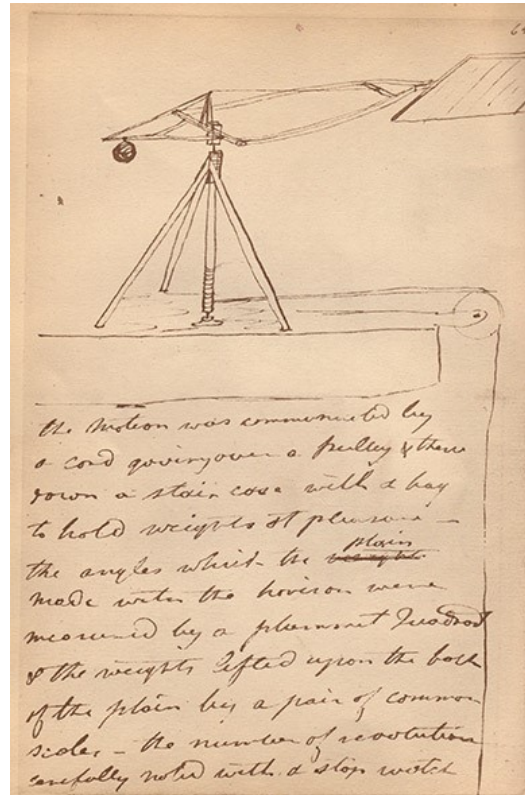 the motion was communicated by
a cord going over a pulley & thence
down a stair case with a bag
to hold weights at pleasure —
the angles which the weights plain
made with the horison were
measured by a plummet Quadrant
& the weights lifted upon the back
of the plain by a pair of common
scales – the number of revolutions
carefully noted with a stop watch